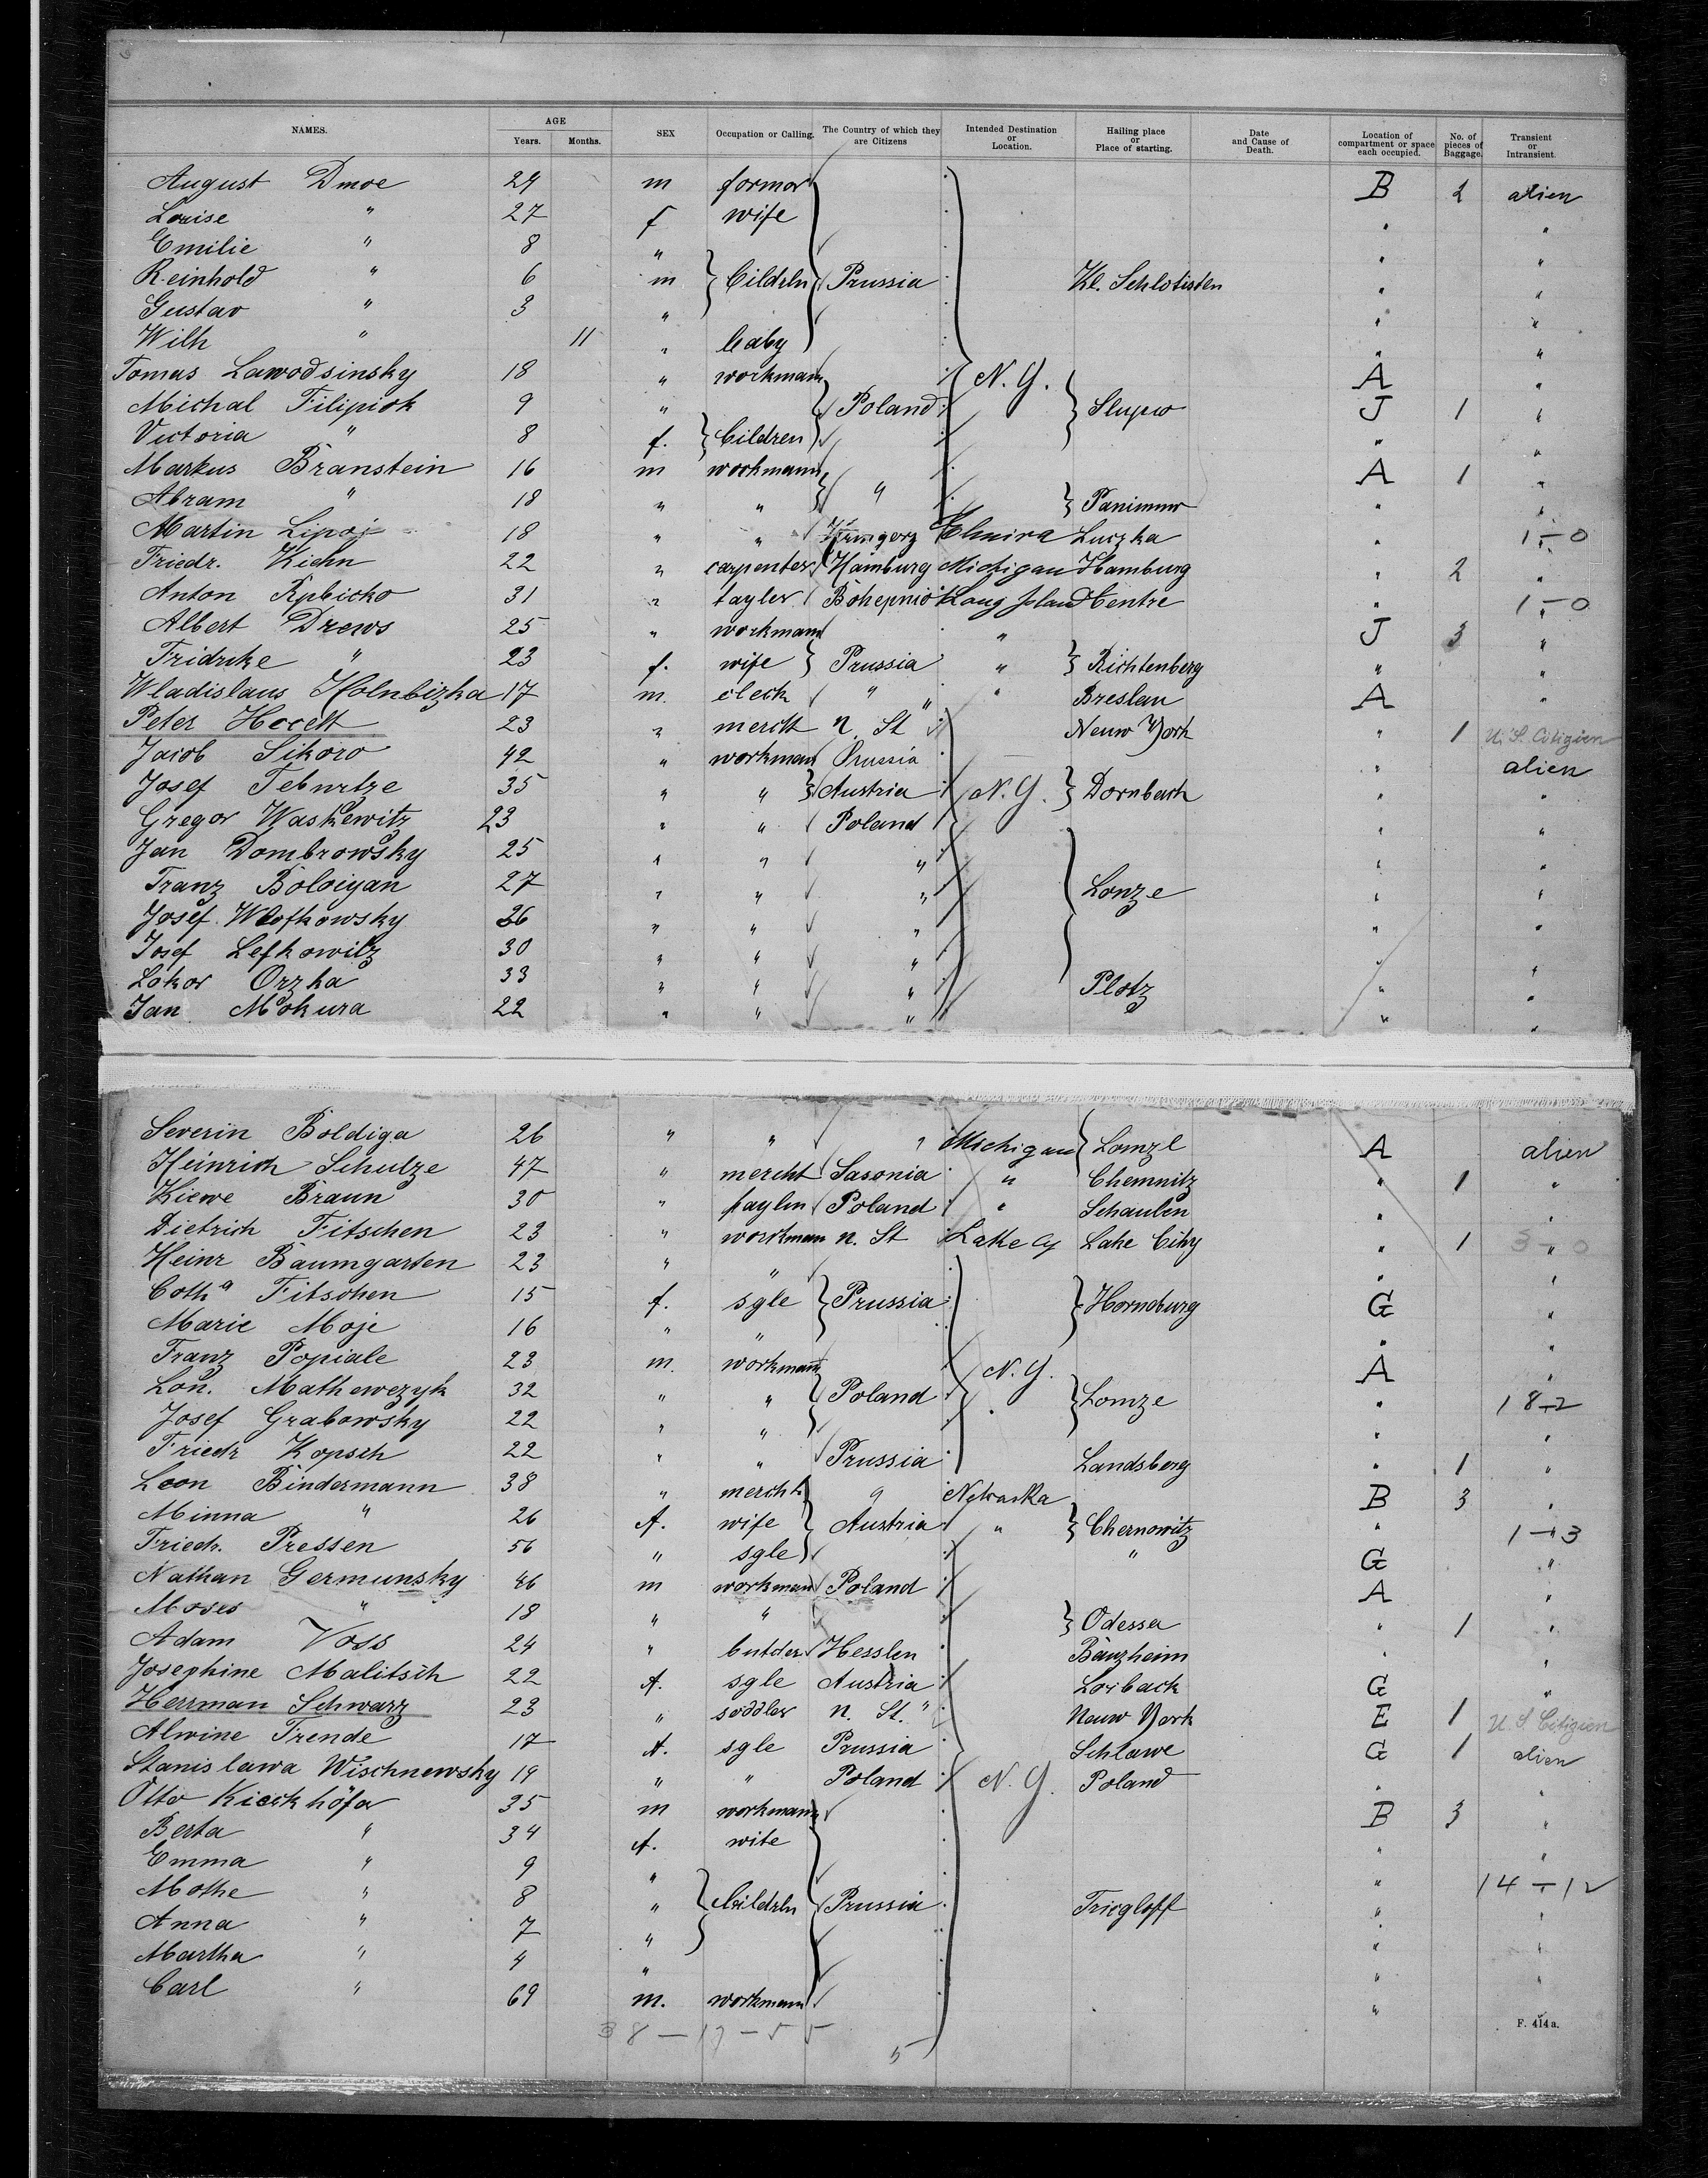 NAMES. AGE Years. Months. SEX Occupation or Calling. The Country of which they are Citizens Intended Destination or Location. Hailing place or Place of starting. Date and Cause of Death. Location of compartment or space each occupied. No. of pieces of Baggage. Transient or Intransient.
August Dmoe 29 m formor B 2 alien
Louise " 27 f wife " "
Emilie " 8 " " "
Reinhold " 6 m Cildreln Prussia Kl. Schlotisten " "
Gustav " 3 " " "
Wilh " 11 " baby " "
Tomas Lawodsinsky 18 " workmann N.Y. A "
Michal Filipiok 9 " Poland Slupco J 1 "
Victoria " 8 f. Cildren " "
Markus Branstein 16 m workmann A 1 "
Abram " 18 " " " Panimnw " "
Martin Lipoj 18 " " Elmira Luczka " 1-0
Friedr. Kiehn 22 " carpenter Hamburg Michigan Hamburg " 2 "
Anton Rpbicko 31 " tayler Long Island Centre " 1-0
Albert Drews 25 " workmann " J 3 "
Fridrike " 23 f. wife Prussia " Richtenberg " "
Wladislaus Holnbizka 17 m. cleck " " Breslau A "
Peter Hocett 23 " merctt n. St " Neuw York " 1 U. S. Citizien
Jacob Sikoro 42 " workmann Prussia " alien
Josef Teburtze 35 " " Austria N.Y. Dornbach " "
Gregor Waskewitz 23 " " Poland " "
Jan Dombrowsky 25 " " " " "
Franz Boloiyan 27 " " " Lonze " "
Josef Wlofkowsky 26 " " " " "
Josef Lefkowitz 30 " " " " "
Lokor Orzka 33 " " " Plotz " "
Jan Mokura 22 " " " " "
Severin Boldiga 26 " " " Michigan Lomze A alien
Heinrich Schulze 47 " mercht Sasonia " Chemnitz " 1 "
Kiewe Braun 30 " taylen Poland " Schaulen " "
Dietrich Fitschen 23 " workman n. St Lake Cy Lake City " 1 3-0
Heinr Baumgarten 23 " " " "
Coth a Fitschen 15 f. sgle Prussia Horneburg G "
Marie Moje 16 " " " "
Franz Popiale 23 m. workmann N.Y. A "
Lon. Mathewezyk 32 " " Poland Lomze " 18-2
Josef Grabowsky 22 " " " "
Friedr Kopsch 22 " " Prussia Landsberg " 1 "
Leon Bindermann 38 " mercht " Nebraska B 3 "
Minna " 26 f. wife Austria " Chernowitz " 1-3
Friedr. Pressen 56 " sgle " G "
Nathan Germunsky 46 m workmann Poland A "
Moses " 18 " " Odessa " 1 "
Adam Voss 24 " butder Hesslen Bänzheim " "
Josephine Malitsch 22 f. sgle Austria Loibach G "
Herrman Schwarz 23 " söddler n. St. " Neuw York E 1 U. S. Citizien
Alwine Frende 17 f. sgle Prussia Schlawe G 1 alien
Stanislawa Wischnewsky 19 " " Poland N.Y. Poland " "
Otto Kieckhöfer 35 m workmann B 3 "
Berta " 34 f. wife " "
Emma " 9 " " 14-12
Mothe " 8 " Cildreln Prussia Triegloff " "
Anna " 7 " " "
Martha " 4 " " "
Carl " 69 m. workmann "
38-17-55
5
F. 414 a.